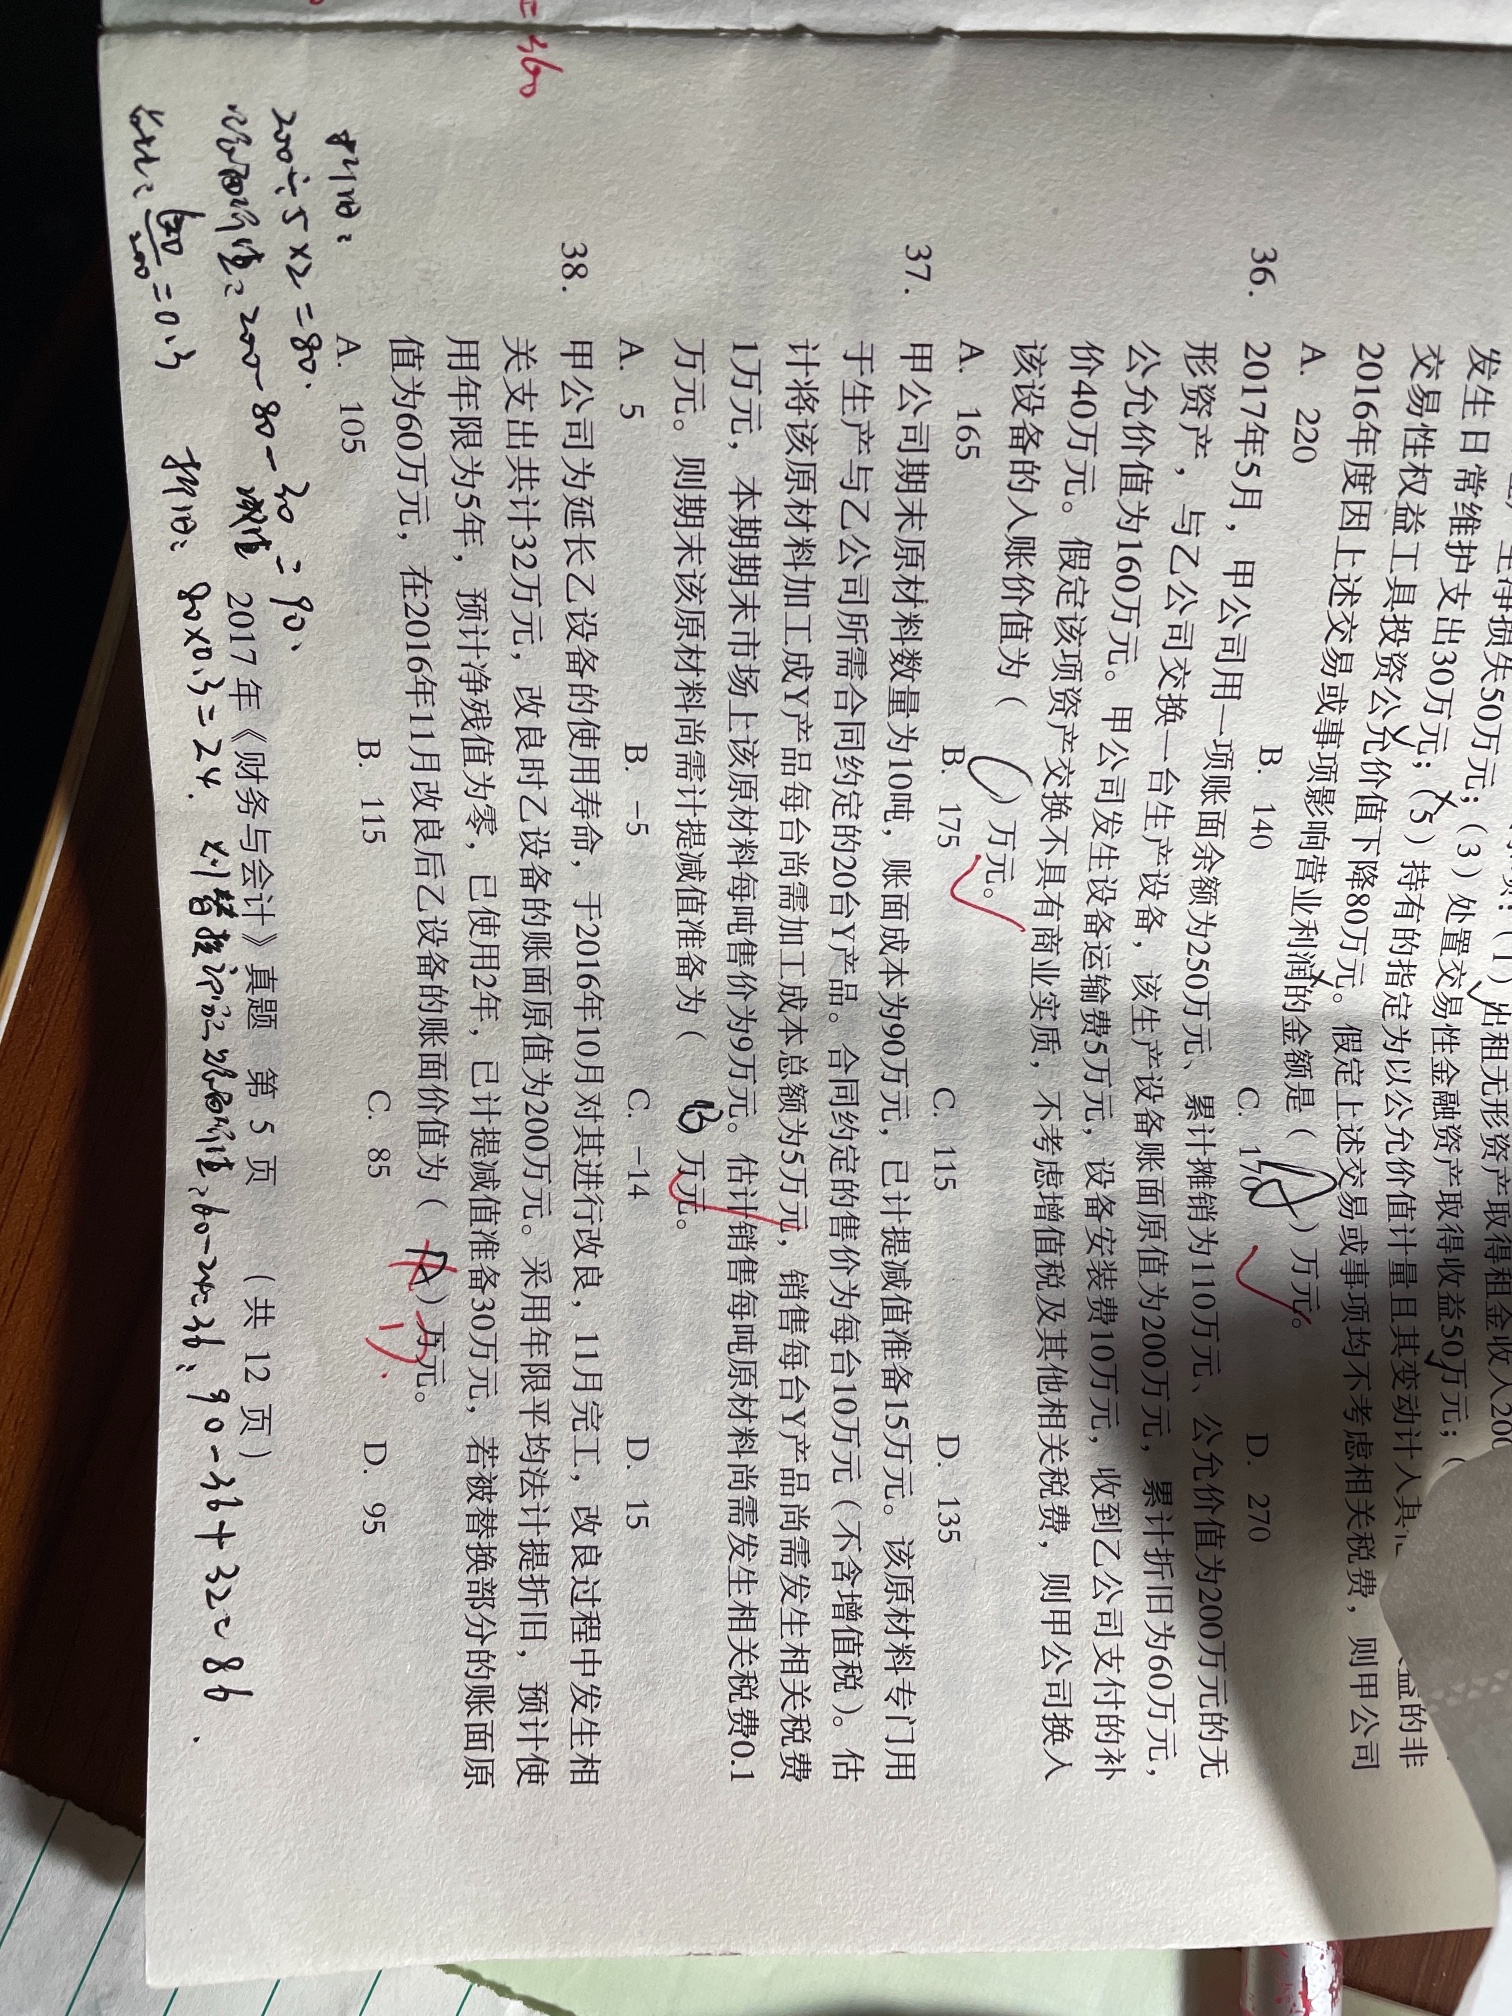 =360
发生日常维护支出30万元;(3)处置交易性金融资产取得收益50万元;(
交易性权益工具投资公允价值下降80万元。假定上述交易或事项均不考虑相关税费,则甲公司
2016年度因上述交易或事项影响营业利润的金额是( A )万元。
A. 220 B. 140 C. 170 D. 270
36. 2017年5月,甲公司用一项账面余额为250万元、累计摊销为110万元、公允价值为200万元的无
形资产,与乙公司交换一台生产设备,该生产设备账面原值为200万元,累计折旧为60万元,
公允价值为160万元。甲公司发生设备运输费5万元,设备安装费10万元,收到乙公司支付的补
价40万元。假定该项资产交换不具有商业实质,不考虑增值税及其他相关税费,则甲公司换入
该设备的入账价值为( C )万元。
A. 165 B. 175 C. 115 D. 135
37. 甲公司期末原材料数量为10吨,账面成本为90万元,已计提减值准备15万元。该原材料专门用
于生产与乙公司所需合同约定的20台Y产品。合同约定的售价为每台10万元(不含增值税)。估
计将该原材料加工成Y产品每台尚需加工成本总额为5万元,销售每台Y产品尚需发生相关税费
1万元,本期期末市场上该原材料每吨售价为9万元。估计销售每吨原材料尚需发生相关税费0.1
万元。则期末该原材料尚需计提减值准备为( B )万元。
A. 5 B. -5 C. -14 D. 15
38. 甲公司为延长乙设备的使用寿命,于2016年10月对其进行改良,11月完工,改良过程中发生相
关支出共计32万元,改良时乙设备的账面原值为200万元。采用年限平均法计提折旧,预计使
用年限为5年,预计净残值为零,已使用2年,已计提减值准备30万元,若被替换部分的账面原
值为60万元,在2016年11月改良后乙设备的账面价值为( A )万元。
A. 105 B. 115 C. 85 D. 95
折旧:
200÷5×2=80.
账面价值:200-80-30=90.
减值
2017年《财务与会计》真题 第 5 页 (共 12 页)
=0.3 折旧: 80×0.3=24. 账面价值:60-24=36; 90-36+32=86.